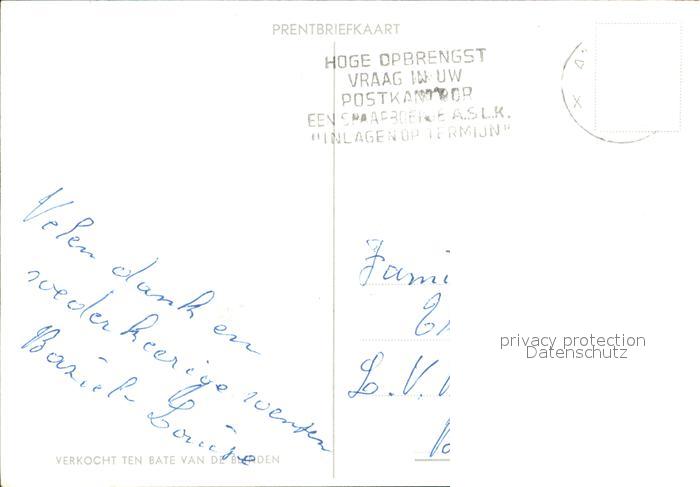 PRENTBRIEFKAART
HOGE OPBRENGST
VRAAG IN UW
POSTKANTOOR
EEN SPAARBOEKJE A.S.L.K.
"INLAGEN OP TERMIJN"
X
Velen dank en
wederkeerige wensen
Baziel-Louise
Fami
L.V.
privacy protection
Datenschutz
VERKOCHT TEN BATE VAN DE BLINDEN